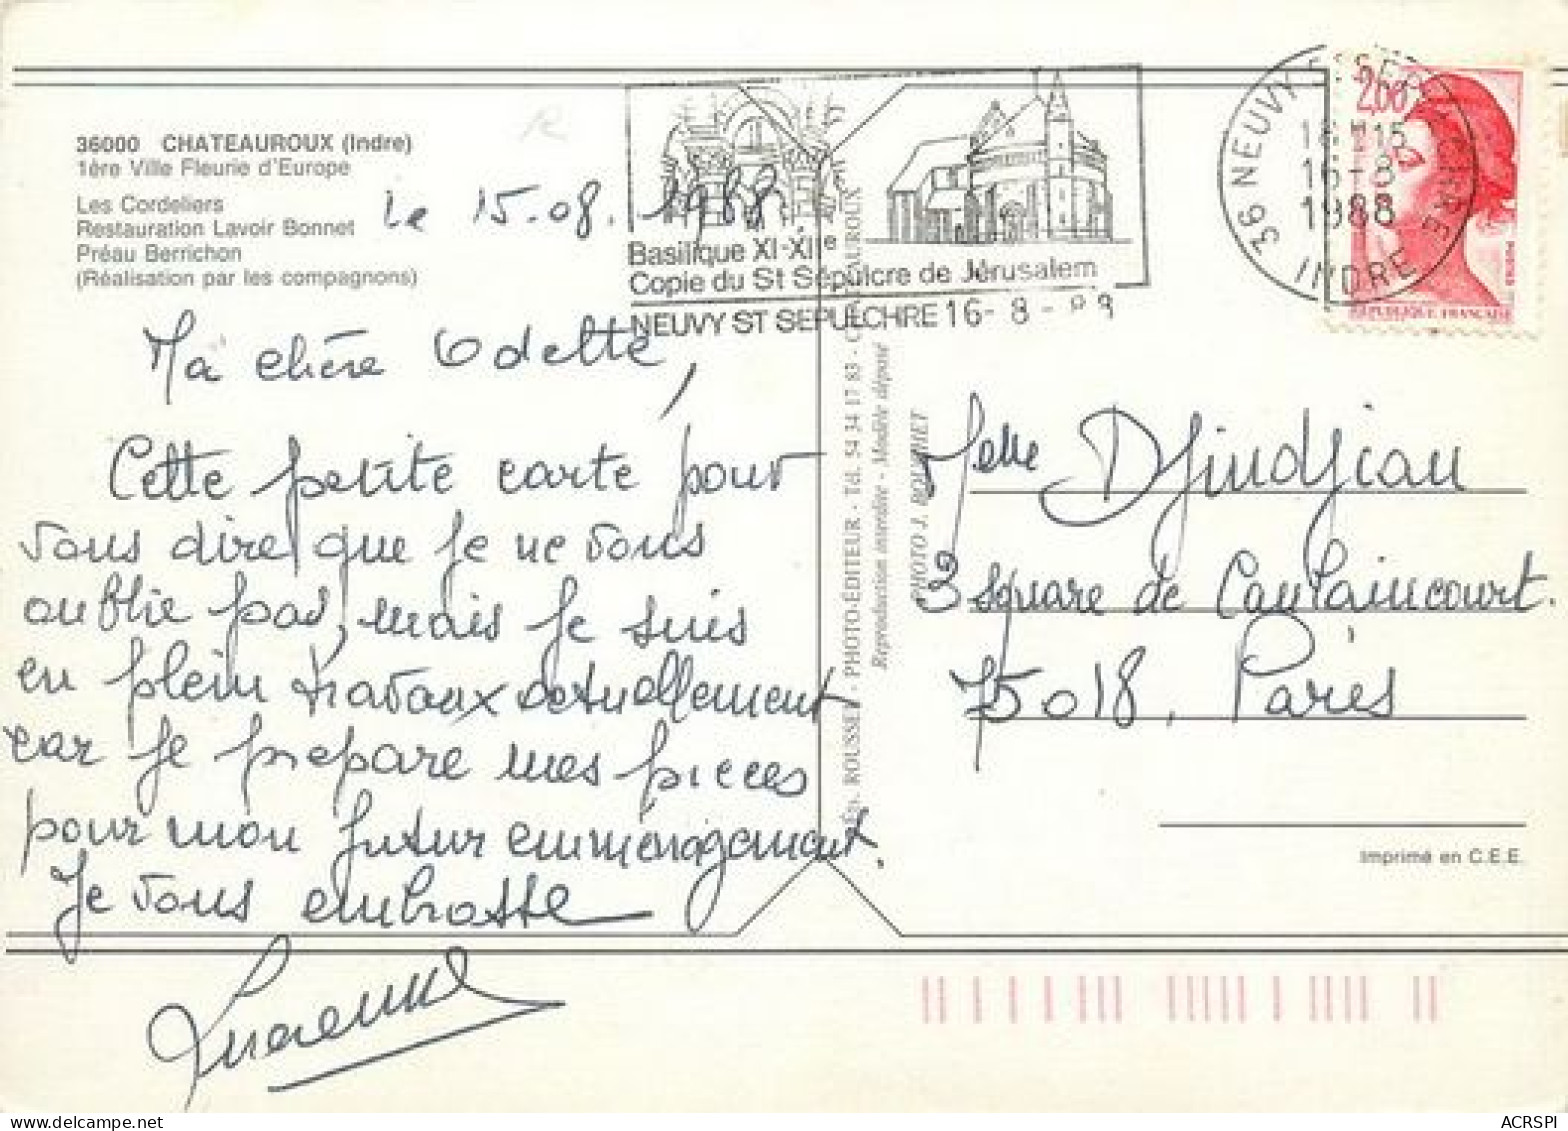 36000 CHATEAUROUX (Indre)
1ère Ville Fleurie d'Europe
Les Cordeliers
Restauration Lavoir Bonnet
Préau Berrichon
(Réalisation par les compagnons)
Le 15.08.1988.
Ma chère Odette,
Cette petite carte pour
vous dire que je ne vous
oublie pas, mais je suis
en plein travaux actuellement
car je prepare mes pieces
pour mon futur emménagement.
Je vous embrasse
Lucienne
Basilique XI-XIIe
Copie du St Sépulcre de Jérusalem
NEUVY ST SEPULCHRE 16-8-88
36 NEUVY ST SEPULCHRE
INDRE
16-8
1988
2,00
REPUBLIQUE FRANÇAISE
POSTES
ROUSSEL - PHOTO-ÉDITEUR - Tél. 54 34 17 83 -
Reproduction interdite - Modèle déposé
Melle Djindjian
3 square de Caulaincourt.
75018, Paris
Imprimé en C.E.E.
ACRSPI